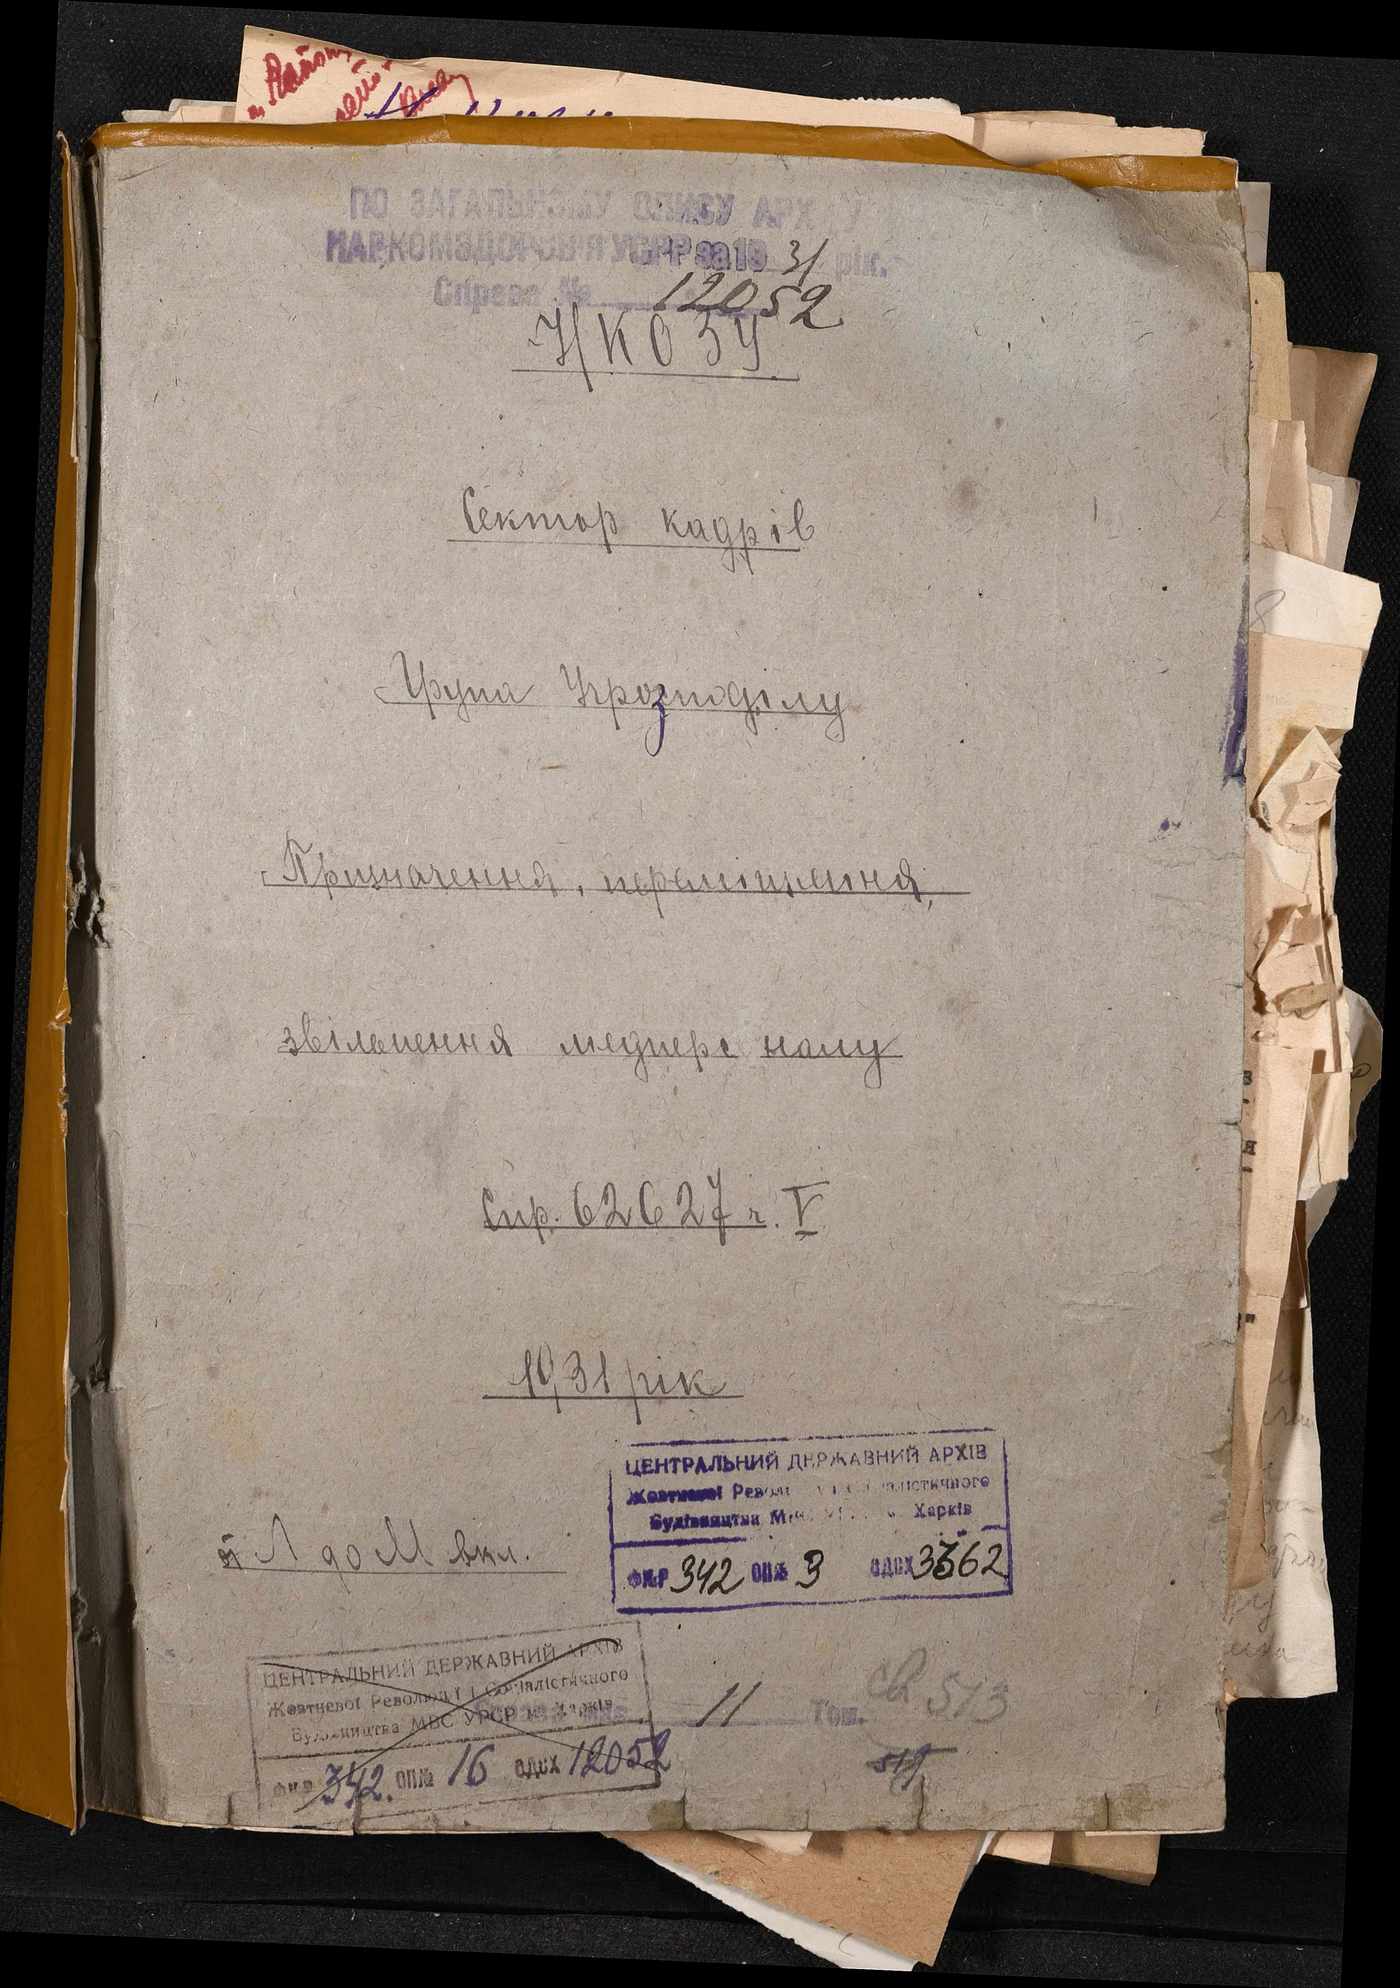 ПО ЗАГАЛЬНОМУ ОПИСУ АРХІВУ
НАРКОМЗДОРОВ'Я УСРР за 1931 рік.
Справа № 12052
НКОЗУ
Сектор кадрів
Група Укрозподілу
Призначення, переміщення,
звільнення медперсоналу
Спр. 62627 ч. V
1931 рік
Л до М вкл.
ЦЕНТРАЛЬНИЙ ДЕРЖАВНИЙ АРХІВ
Жовтневої Революції і Соціалістичного
Будівництва Харків
Ф№Р 342 ОП№ 3 ОДСХ 3362
ЦЕНТРАЛЬНИЙ ДЕРЖАВНИЙ АРХІВ
Жовтневої Революції і Соціалістичного
Будівництва МВС УРСР м. Харків
Ф№Р 342. ОП№ 16 ОДСХ 12052
11 Том.
св 513